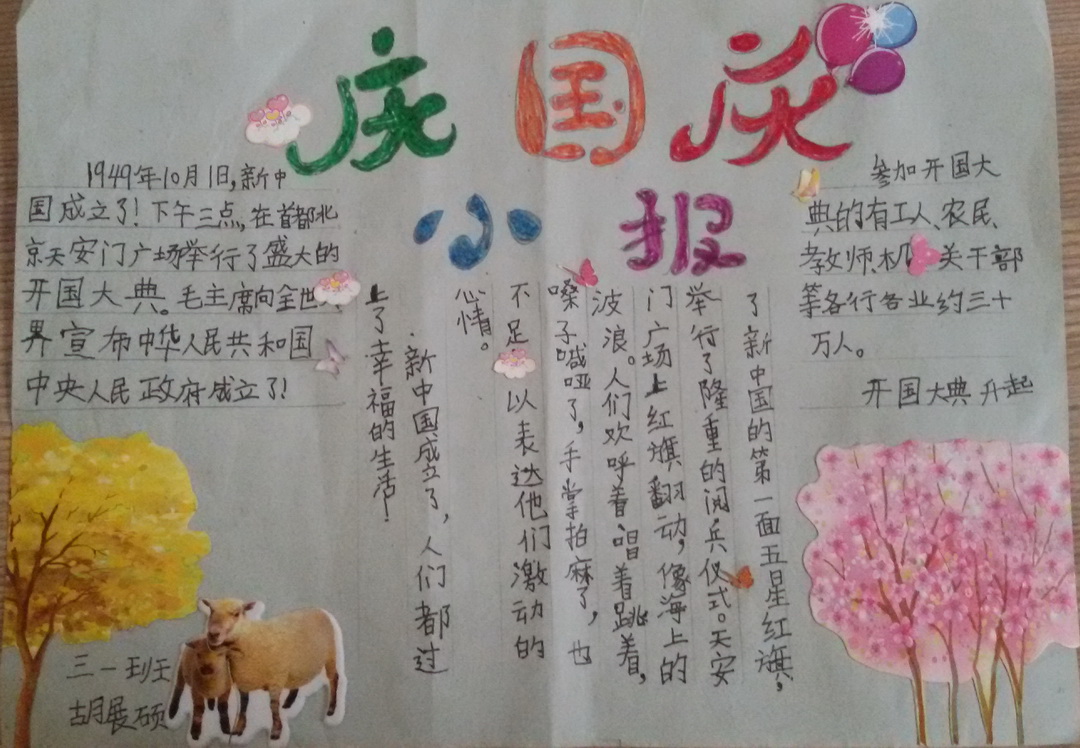 庆国庆
小报
1949年10月1日,新中
国成立了!下午三点,在首都北
京天安门广场举行了盛大的
开国大典。毛主席向全世
界宣布中华人民共和国
中央人民政府成立了!
参加开国大
典的有工人、农民、
教师、机关干部
等各行各业约三十
万人。
开国大典升起
了新中国的第一面五星红旗,
举行了隆重的阅兵仪式。天安
门广场上红旗翻动,像海上的
波浪。人们欢呼着唱着跳着,
嗓子喊哑了,手掌拍麻了,也
不足以表达他们激动的
心情。
新中国成立了,人们都过
上了幸福的生活!
三一班
胡展硕